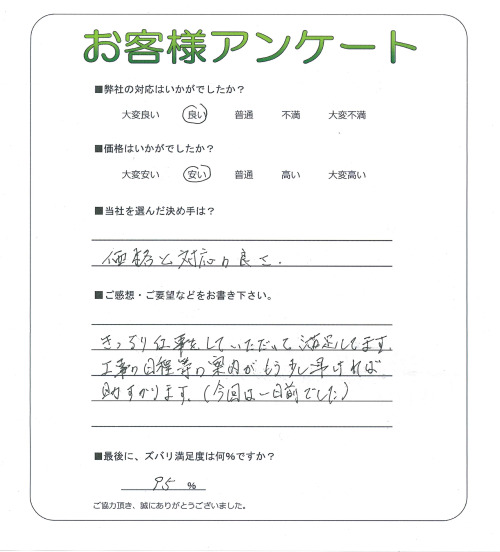 お客様アンケート
■弊社の対応はいかがでしたか？
大変良い 良い 普通 不満 大変不満
■価格はいかがでしたか？
大変安い 安い 普通 高い 大変高い
■当社を選んだ決め手は？
価格と対応の良さ。
■ご感想・ご要望などをお書き下さい。
きっちり仕事をしていただいて満足してます。
工事の日程等の案内がもう少し早ければ
助かります。(今回は一日前でした)
■最後に、ズバリ満足度は何％ですか？
95 %
ご協力頂き、誠にありがとうございました。